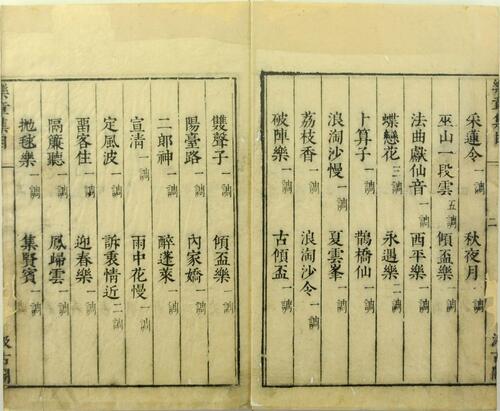 采蓮令一調 秋夜月一調
巫山一段雲五調 傾盃樂一調
法曲獻仙音一調 西平樂一調
蝶戀花三調 永遇樂二調
卜算子一調 鵲橋仙一調
浪淘沙慢一調 夏雲峯一調
荔枝香一調 浪淘沙令一調
破陣樂一調 古傾盃一調
雙聲子一調 傾盃樂一調
陽臺路一調 內家嬌一調
二郎神一調 醉蓬萊一調
宣清一調 雨中花慢一調
定風波一調 訴衷情近二調
畱客住一調 迎春樂一調
隔簾聽一調 鳳歸雲一調
拋毬樂一調 集賢賓一調
樂章集目
汲古閣